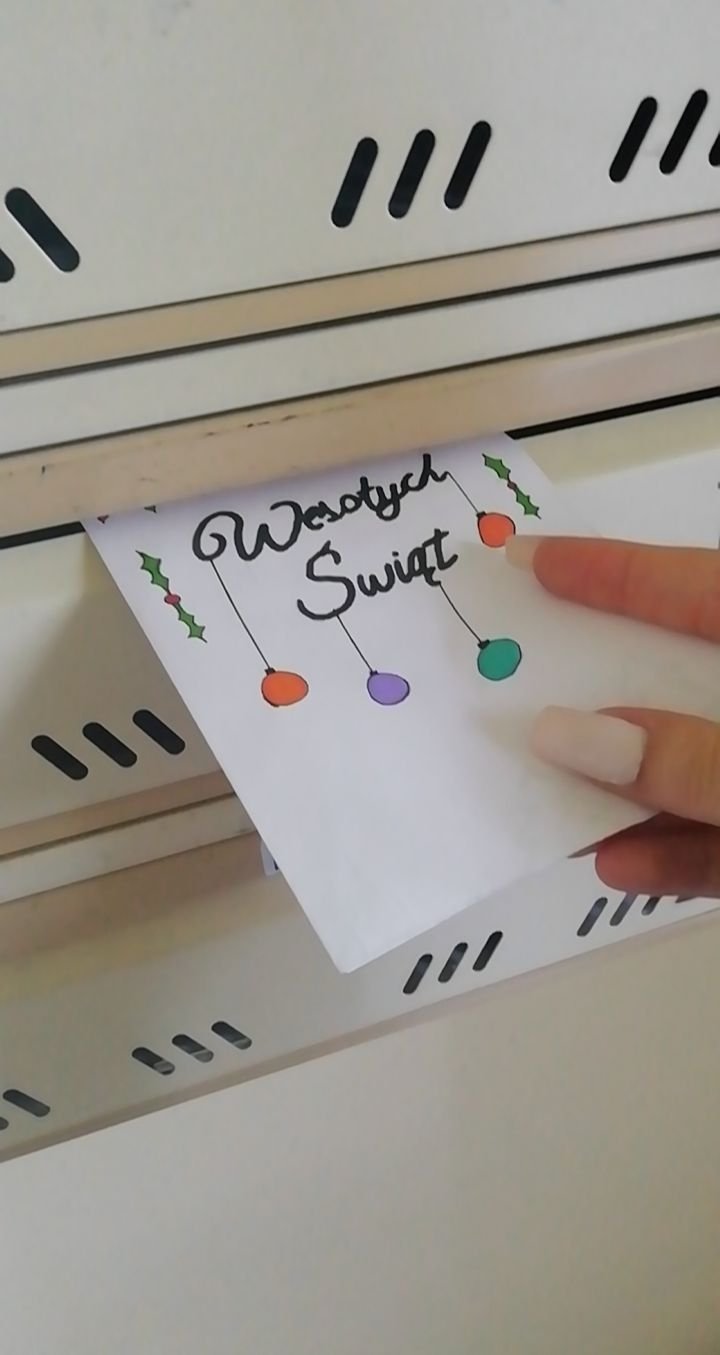 Wesołych
Świąt